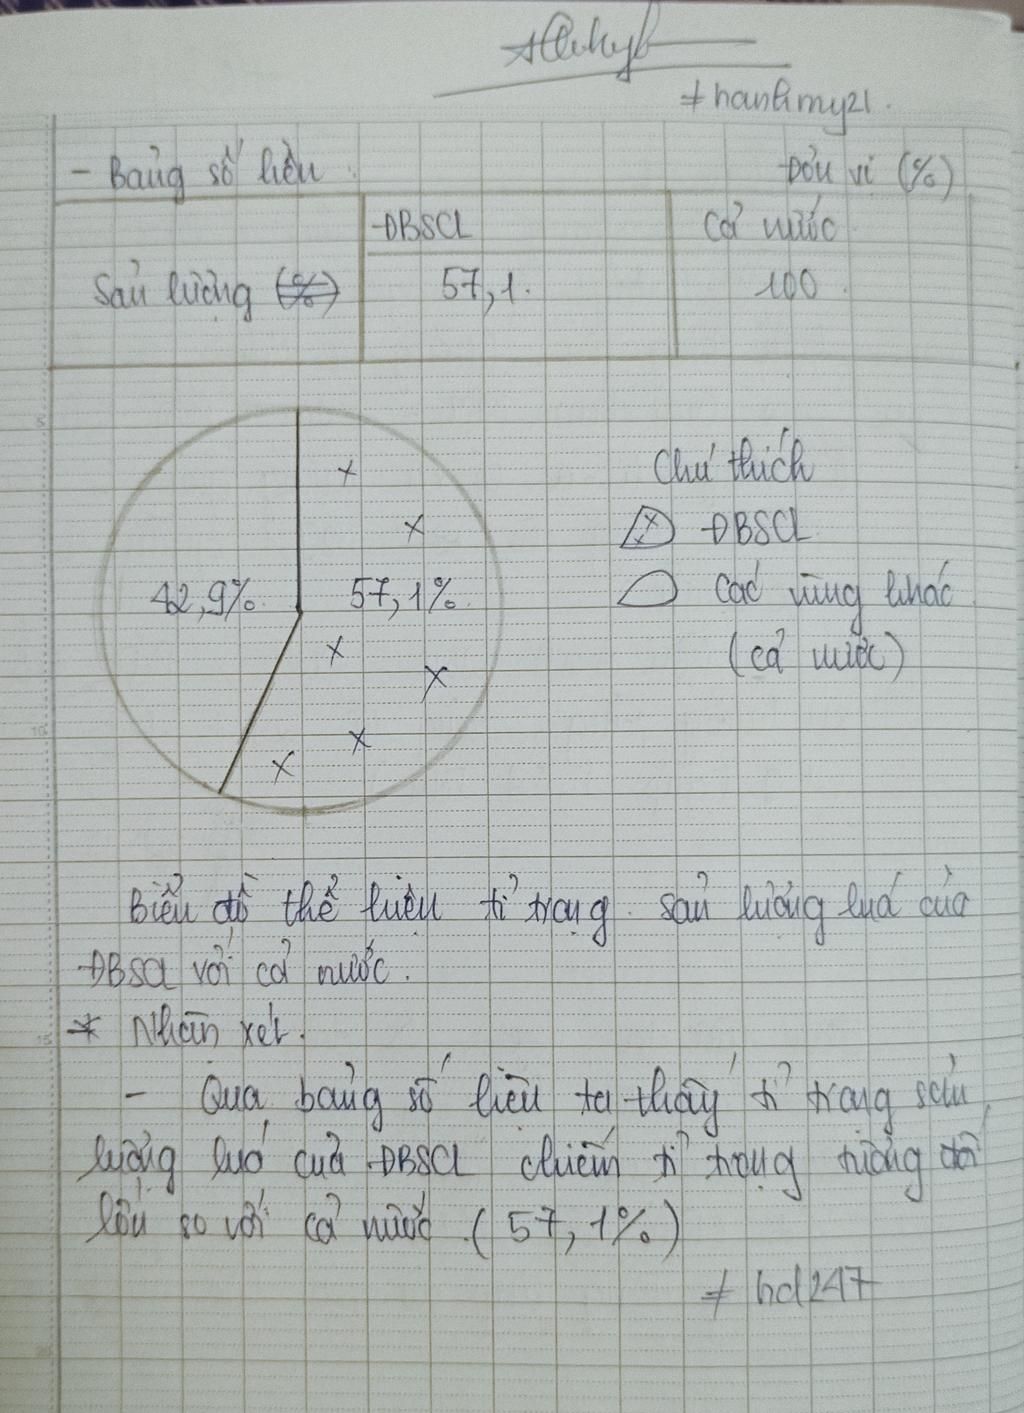 #hanhmy21.
- Bảng số liệu. Đơn vị (%)
ĐBSCL Cả nước
Sản lượng (%) 57,1. 100.
Chú thích
x ĐBSCL
42,9% 57,1% Các vùng khác
(cả nước)
Biểu đồ thể hiện tỉ trọng sản lượng lúa của
ĐBSCL với cả nước.
* Nhận xét.
- Qua bảng số liệu ta thấy tỉ trọng sản
lượng lúa của ĐBSCL chiếm tỉ trọng tương đối
lớn so với cả nước. (57,1%)
# hd247